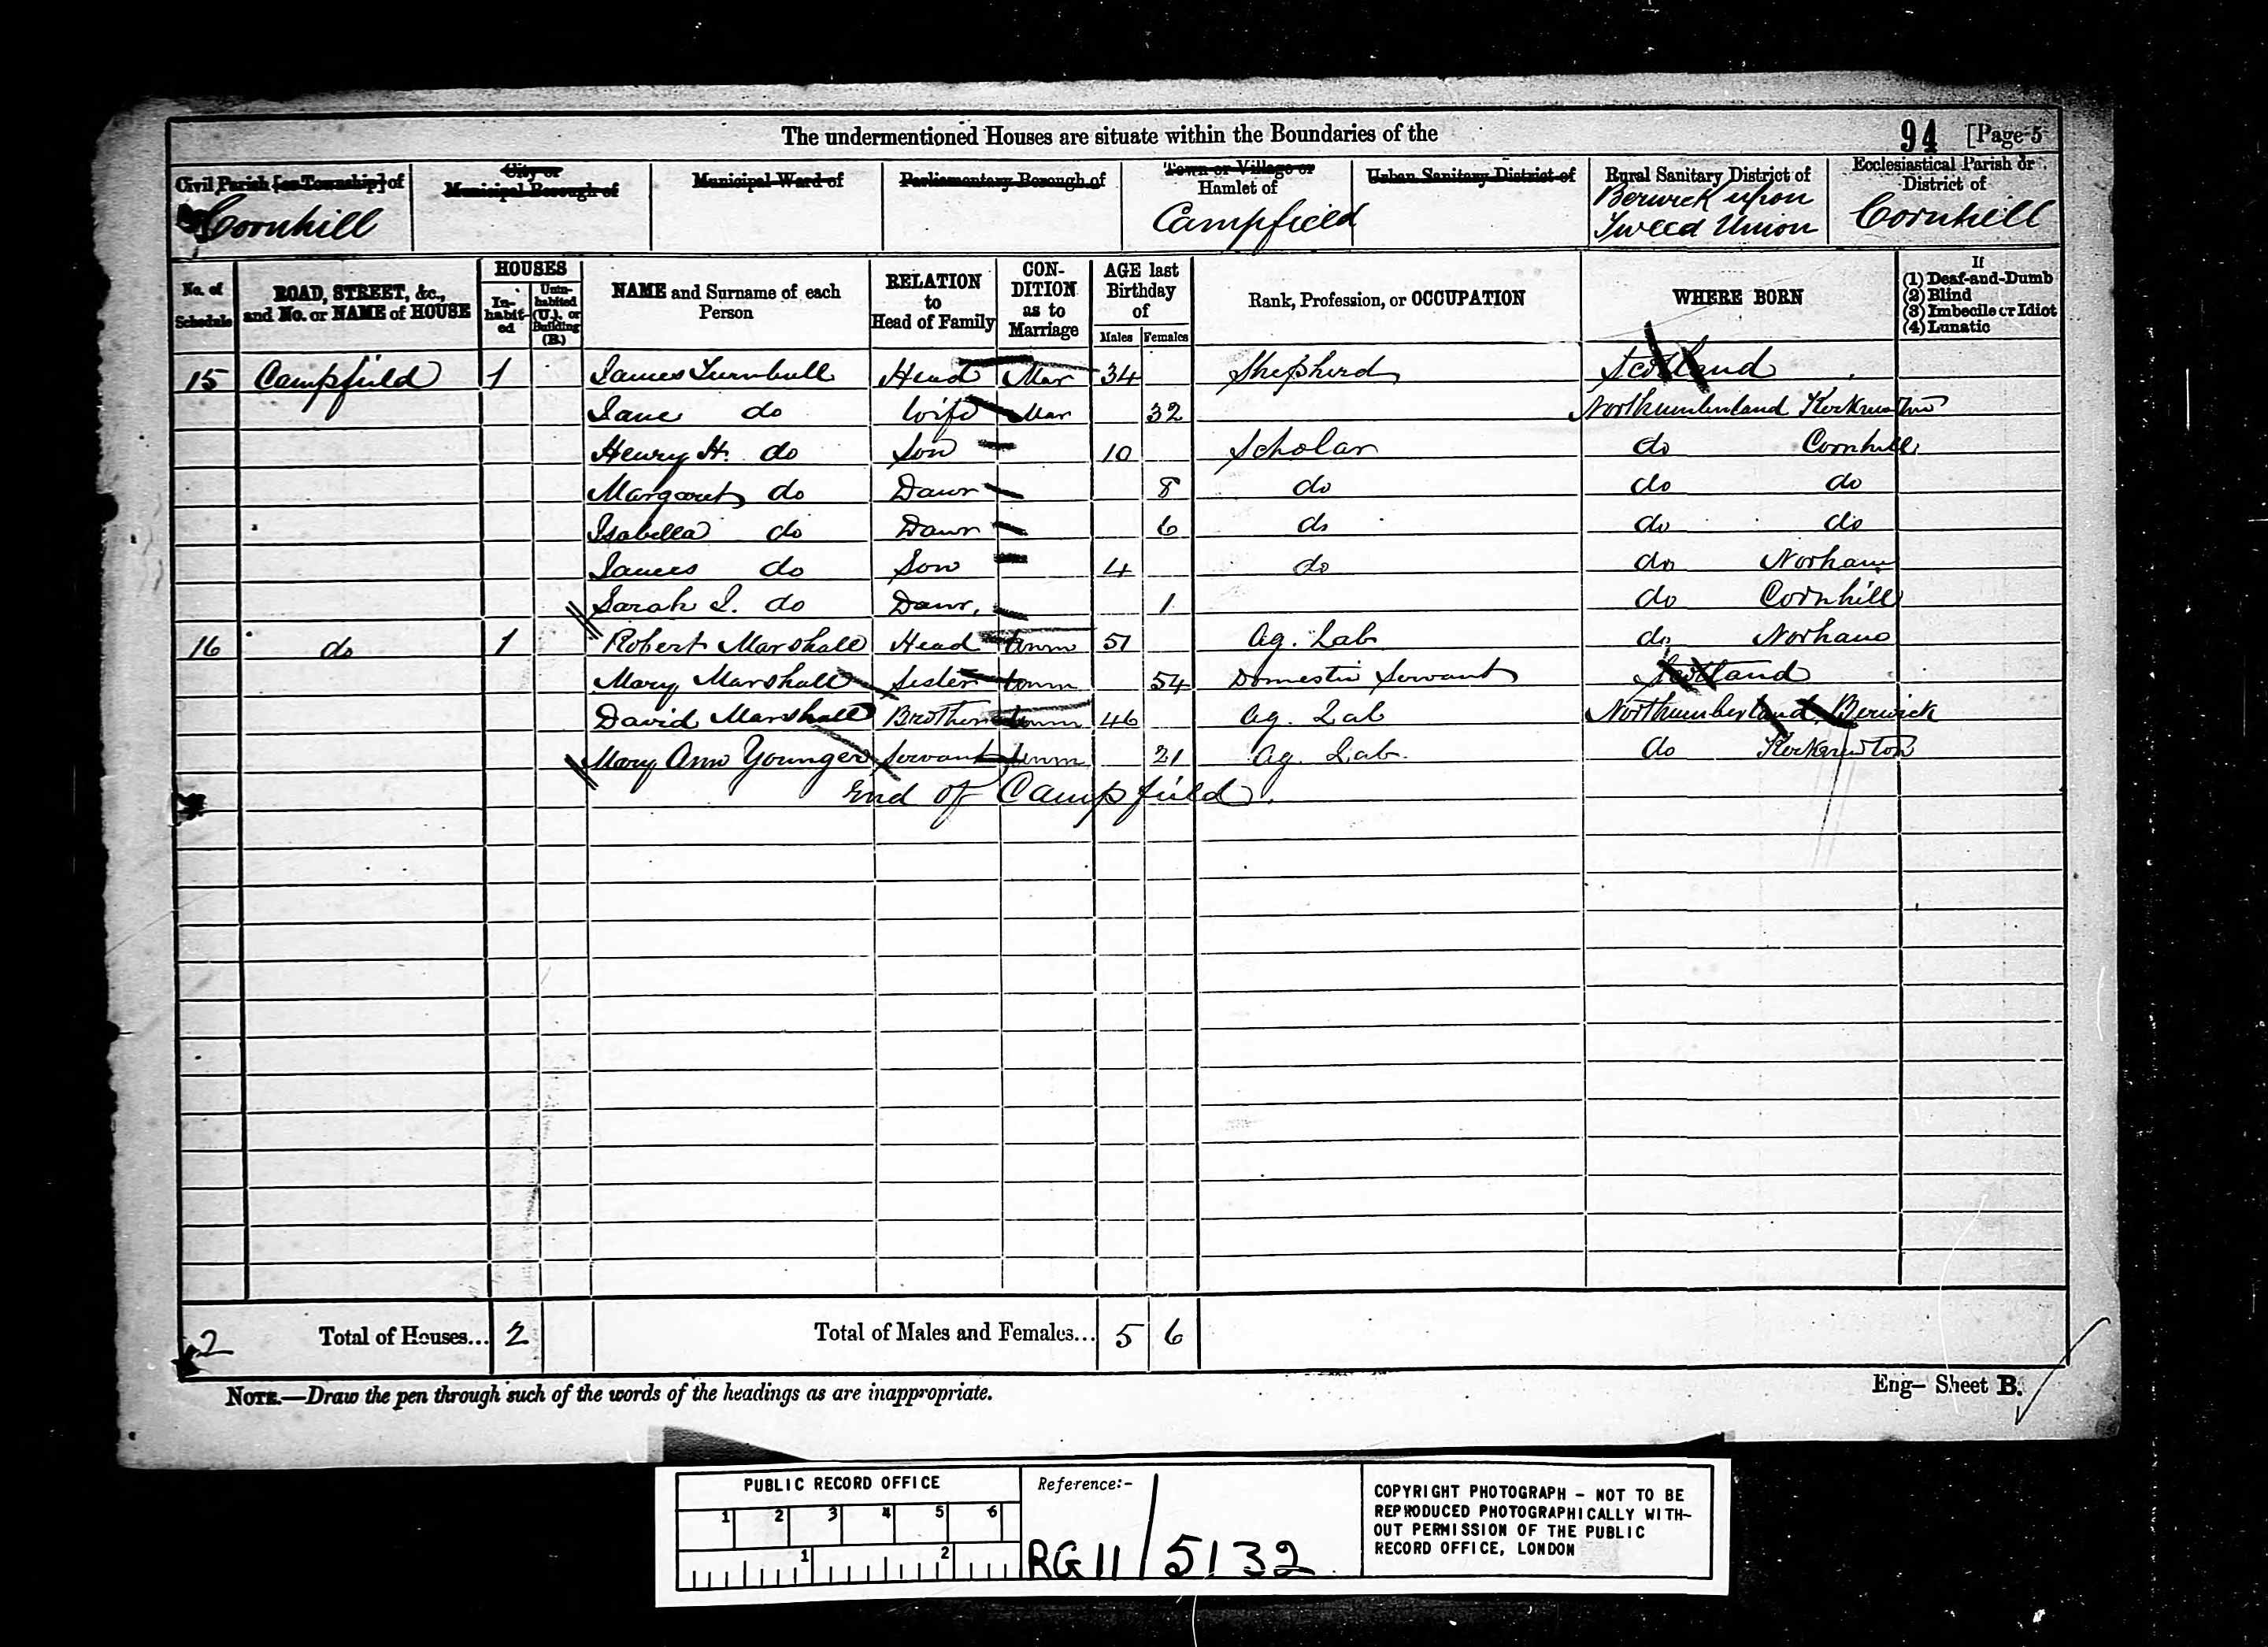 The undermentioned Houses are situate within the Boundaries of the
94 [Page 5
Civil Parish [or Township] of
City or Municipal Borough of
Municipal Ward of
Parliamentary Borough of
Town or Village or Hamlet of
Urban Sanitary District of
Rural Sanitary District of
Ecclesiastical Parish or District of
Cornhill Campfield Berwick upon Tweed Union Cornhill
No. of Schedule
ROAD, STREET, &c., and No. or NAME of HOUSE
HOUSES
In-habit-ed
Unin-habited (U.), or Building (B.)
NAME and Surname of each Person
RELATION to Head of Family
CON-DITION as to Marriage
AGE last Birthday of
Males Females
Rank, Profession, or OCCUPATION
WHERE BORN
If
(1) Deaf-and-Dumb
(2) Blind
(3) Imbecile or Idiot
(4) Lunatic
15 Campfield 1 James Turnbull Head Mar 34 Shepherd Scotland
Jane do Wife Mar 32 Northumberland Kirknewton
Henry H. do Son 10 Scholar do Cornhill
Margaret do Daur 8 do do do
Isabella do Daur 6 do do do
James do Son 4 do do Norham
Sarah J. do Daur. 1 do Cornhill
16 do 1 Robert Marshall Head unm 51 Ag. Lab do Norham
Mary Marshall Sister unm 54 Domestic Servant Scotland
David Marshall Brother unm 46 Ag. Lab Northumberland, Berwick
Mary Ann Younger Servant unm 21 Ag. Lab. do Kirknewton
End of Campfield.
2 Total of Houses... 2 Total of Males and Females... 5 6
NOTE.—Draw the pen through such of the words of the headings as are inappropriate.
Eng— Sheet B.
PUBLIC RECORD OFFICE
1 2 3 4 5 6
1 2
Reference:-
RG 11 / 5132
COPYRIGHT PHOTOGRAPH - NOT TO BE
REPRODUCED PHOTOGRAPHICALLY WITH-
OUT PERMISSION OF THE PUBLIC
RECORD OFFICE, LONDON